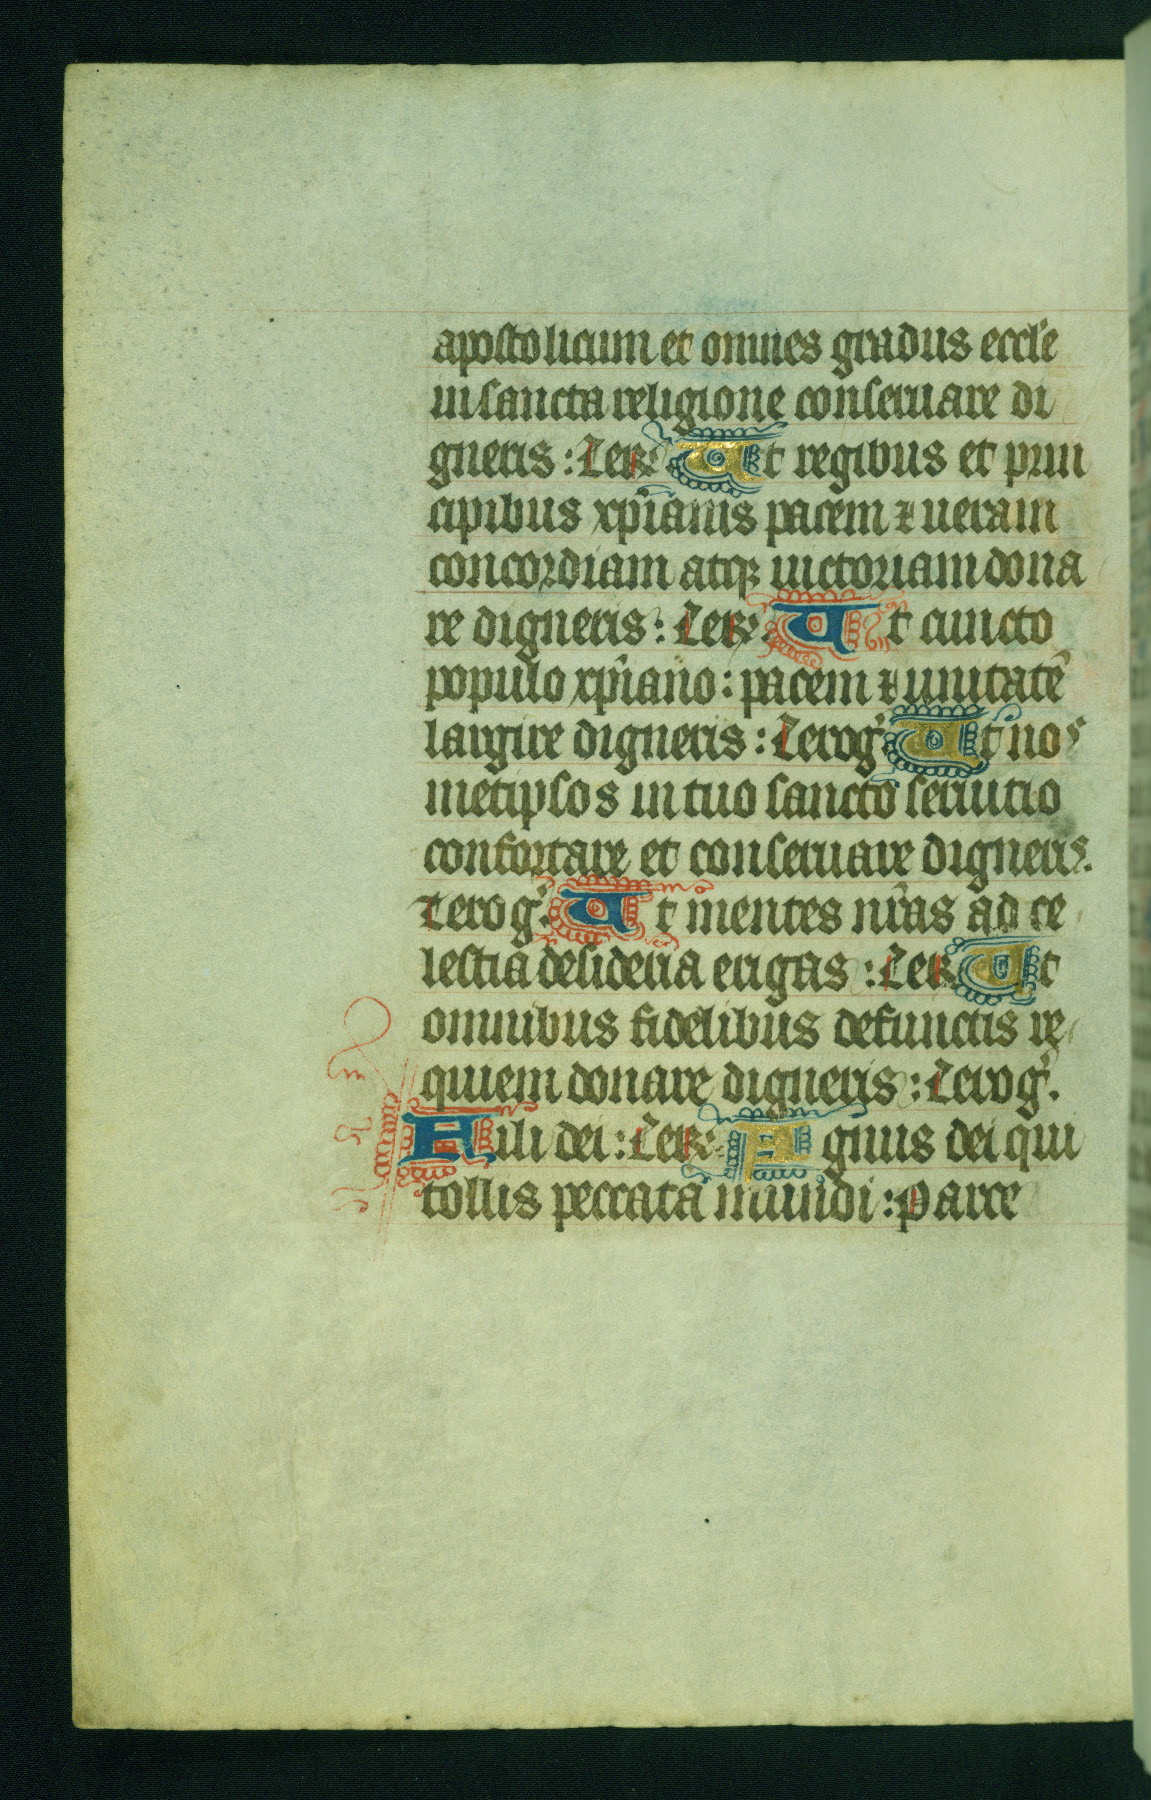 apostolicum et omnes gradus eccl'e
in sancta religione conseruare di
gneris : Ter Ut regibus et prin
cipibus xp̄ianis pacem ⁊ ueram
concordiam atqꝫ uictoriam dona
re digneris : Ter Ut cuncto
populo xp̄iano : pacem ⁊ unitatē
largire digneris : Te rog' Ut nos
metipsos in tuo sancto seruitio
confortare et conseruare digneris.
Te rog' Ut mentes nr̄as ad ce
lestia desideria erigas : Ter Ut
omnibus fidelibus defunctis re
quiem donare digneris : Te rog'.
Fili dei : Ter Agnus dei qui
tollis peccata mundi : Parce